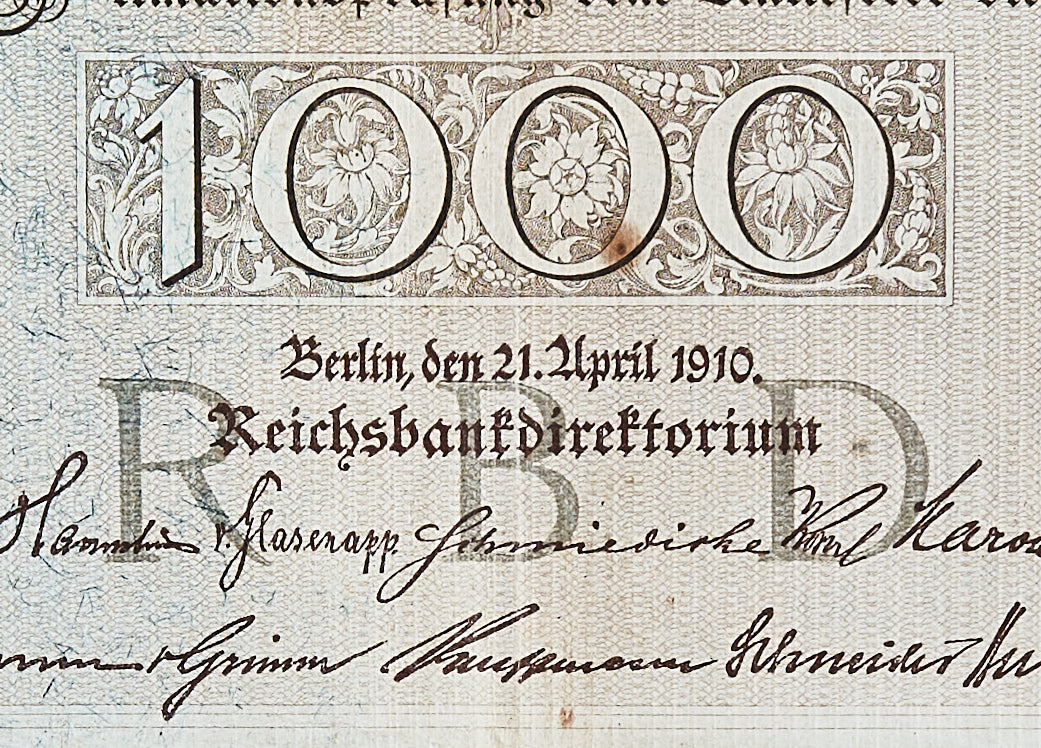 1000
Berlin, den 21. April 1910.
Reichsbankdirektorium
R B D
v. Glasenapp Schmiedicke
v Grimm Kauffmann Schneider